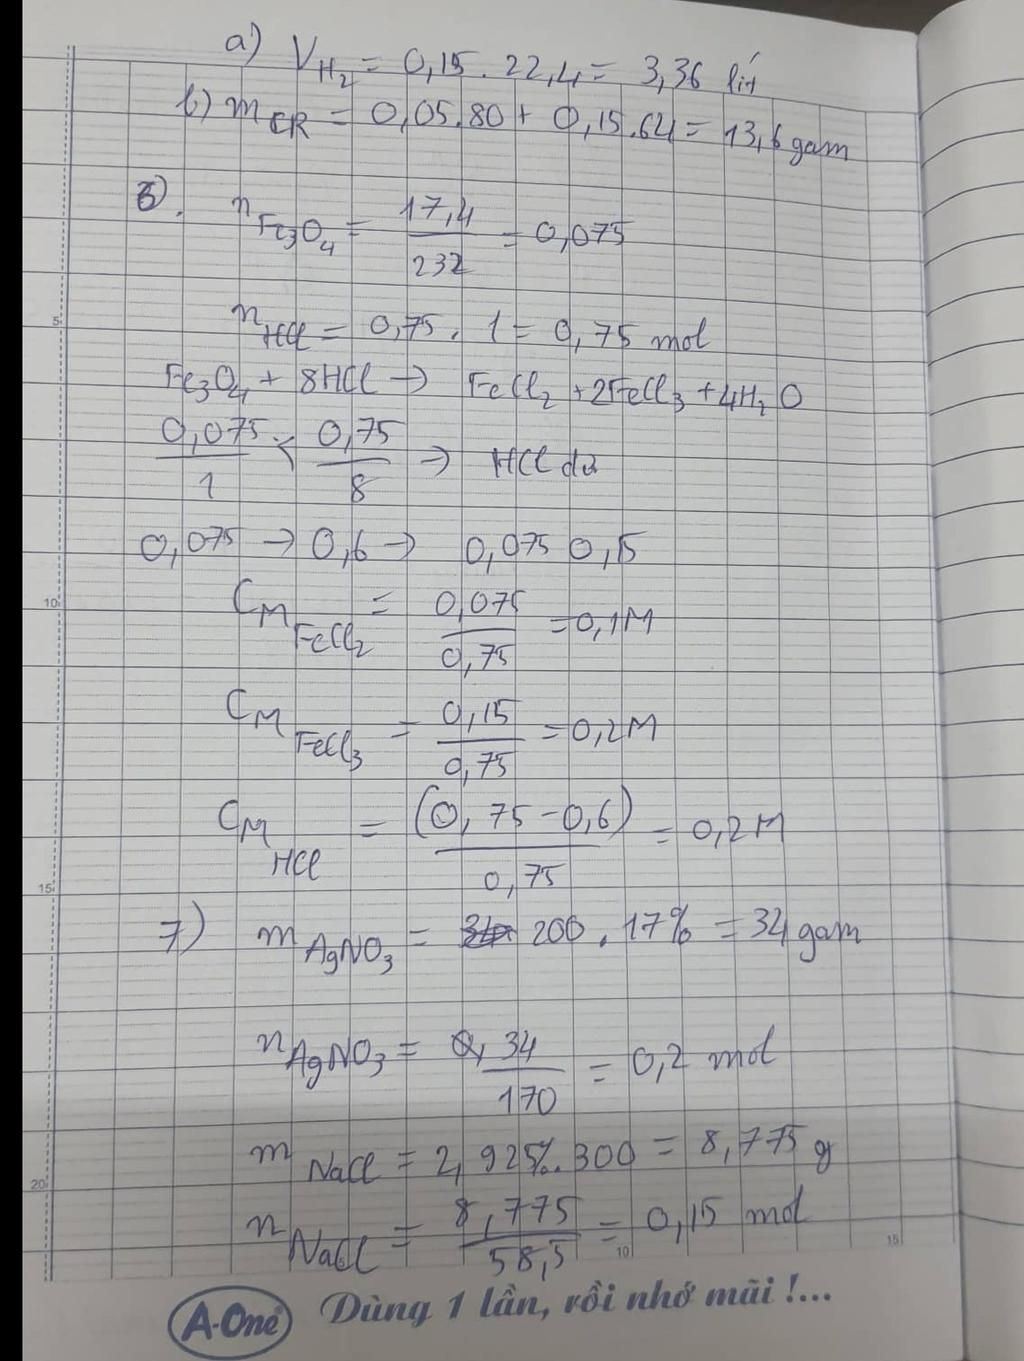 a) V_H₂ = 0,15 . 22,4 = 3,36 lít
b) m_CR = 0,05.80 + 0,15.64 = 13,6 gam
6). n_Fe₃O₄ = 17,4 / 232 = 0,075
n_HCl = 0,75 . 1 = 0,75 mol
Fe₃O₄ + 8HCl → FeCl₂ + 2FeCl₃ + 4H₂O
0,075 / 1 < 0,75 / 8 → HCl dư
0,075 → 0,6 → 0,075 0,15
C_M FeCl₂ = 0,075 / 0,75 = 0,1M
C_M FeCl₃ = 0,15 / 0,75 = 0,2M
C_M HCl = (0,75 - 0,6) / 0,75 = 0,2M
7) m_AgNO₃ = 200 . 17% = 34 gam
n_AgNO₃ = 34 / 170 = 0,2 mol
m_NaCl = 2,925%.300 = 8,775 g
n_NaCl = 8,775 / 58,5 = 0,15 mol
5
10
15
20
10
15
A-One® Dùng 1 lần, rồi nhớ mãi !...